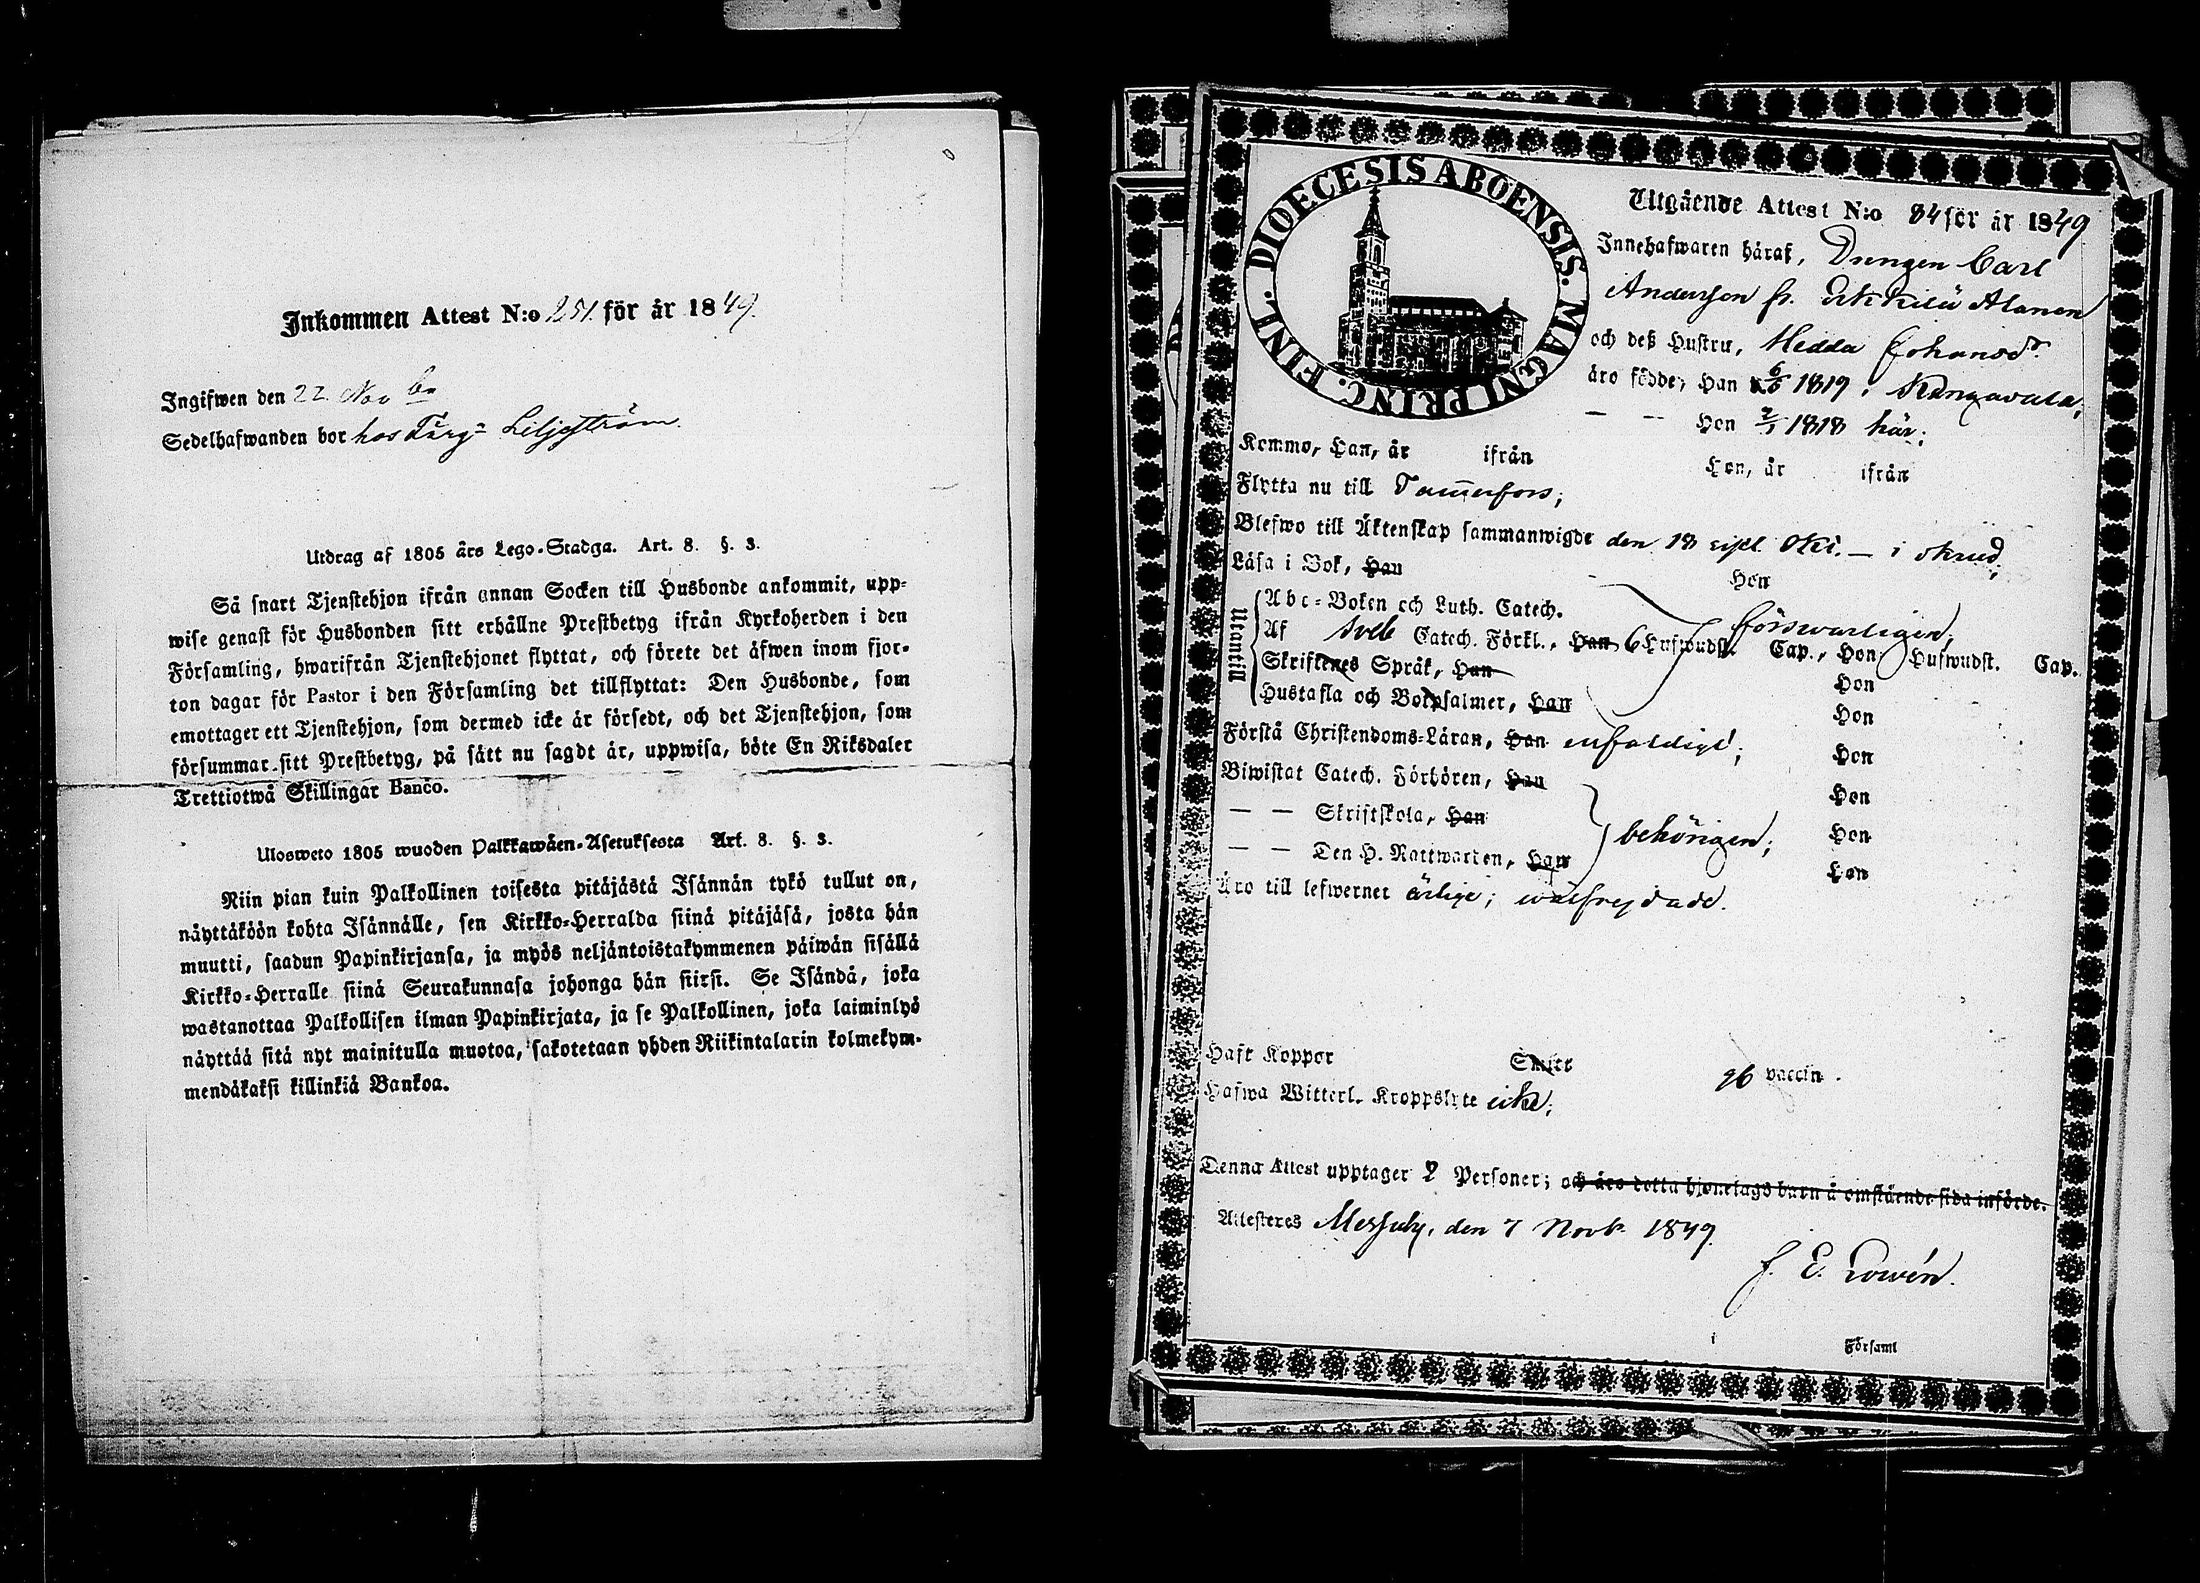 Inkommen Attest N:o 251. för år 1849.
Ingifwen den 22. Novbr
Sedelhafwanden bor hos Färg= Liljeström.
Utdrag af 1805 års Lego-Stadga. Art. 8. §. 3.
Så snart Tjenstehjon ifrån annan Socken till Husbonde ankommit, upp=
wise genast för Husbonden sitt erhållne Prestbetyg ifrån Kyrkoherden i den
Församling, hwarifrån Tjenstehjonet flyttat, och förete det äfwen inom fjor-
ton dagar för Pastor i den Församling det tillflyttat: Den Husbonde, som
emottager ett Tjenstehjon, som dermed icke är försedt, och det Tjenstehjon, som
försummar sitt Prestbetyg, på sätt nu sagdt är, uppwisa, böte En Riksdaler
Trettiotwå Skillingar Banco.
Ulosweto 1805 wuoden Palkkawäen-Asetuksesta Art. 8. §. 3.
Niin pian kuin Palkollinen toisesta pitäjästä Isännän tykö tullut on,
näyttäköön kohta Isännälle, sen Kirkko=Herralda siinä pitäjäsä, josta hän
muutti, saadun Papinkirjansa, ja myös neljäntoistakymmenen päiwän sisällä
Kirkko=Herralle siinä Seurakunnasa johonga hän siirsi. Se Isändä, joka
wastanottaa Palkollisen ilman Papinkirjata, ja se Palkollinen, joka laiminlyö
näyttää sitä nyt mainitulla muotoa, sakotetaan yhden Riikintalarin kolmekym-
mendäkaksi killinkiä Bankoa.
DIOECESIS ABOENSIS. MAGNI PRINC. FINL.
Utgående Attest N:o 84 för år 1849
Innehafwaren häraf, Drengen Carl
Andersson fr. Erkkilä Alanen
och deß Hustru, Hedda Johansdr.
äro födde, Han 6/6 1819 i Kangasala;
— — Hon 2/1 1818 här;
Kommo, Han, år ifrån Hon, år ifrån
Flytta nu till Tammerfors;
Blefwo till Äktenskap sammanwigde den 18 sistl. Okt. — i skrud;
Läsa i Bok, Han Hon
Utantill
Abc=Boken och Luth. Catech. förswarligen;
Af Sveb Catech. Förkl., Han 6 Hufwudst. Cap., Hon Hufwudst. Cap.
Skriftenes Språk, Han Hon
Hustafla och Botpsalmer, Han Hon
Förstå Christendoms=Läran, Han enfaldigt; Hon
Biwistat Catech. Förhören, Han Hon
— — Skriftskola, Han behörigen; Hon
— — Den H. Nattwarden, Han Hon
Äro till lefwernet ärlige; wälfrejdade.
Haft Koppor Smitt vaccin.
Hafwa Witterl. Kroppslyte icke;
Denna Attest upptager 2 Personer; och äro detta hjonelags barn å omstående sida införde.
Attesteras Messuby, den 7 Novb. 1849.
F. E. Lowén.
i Församl